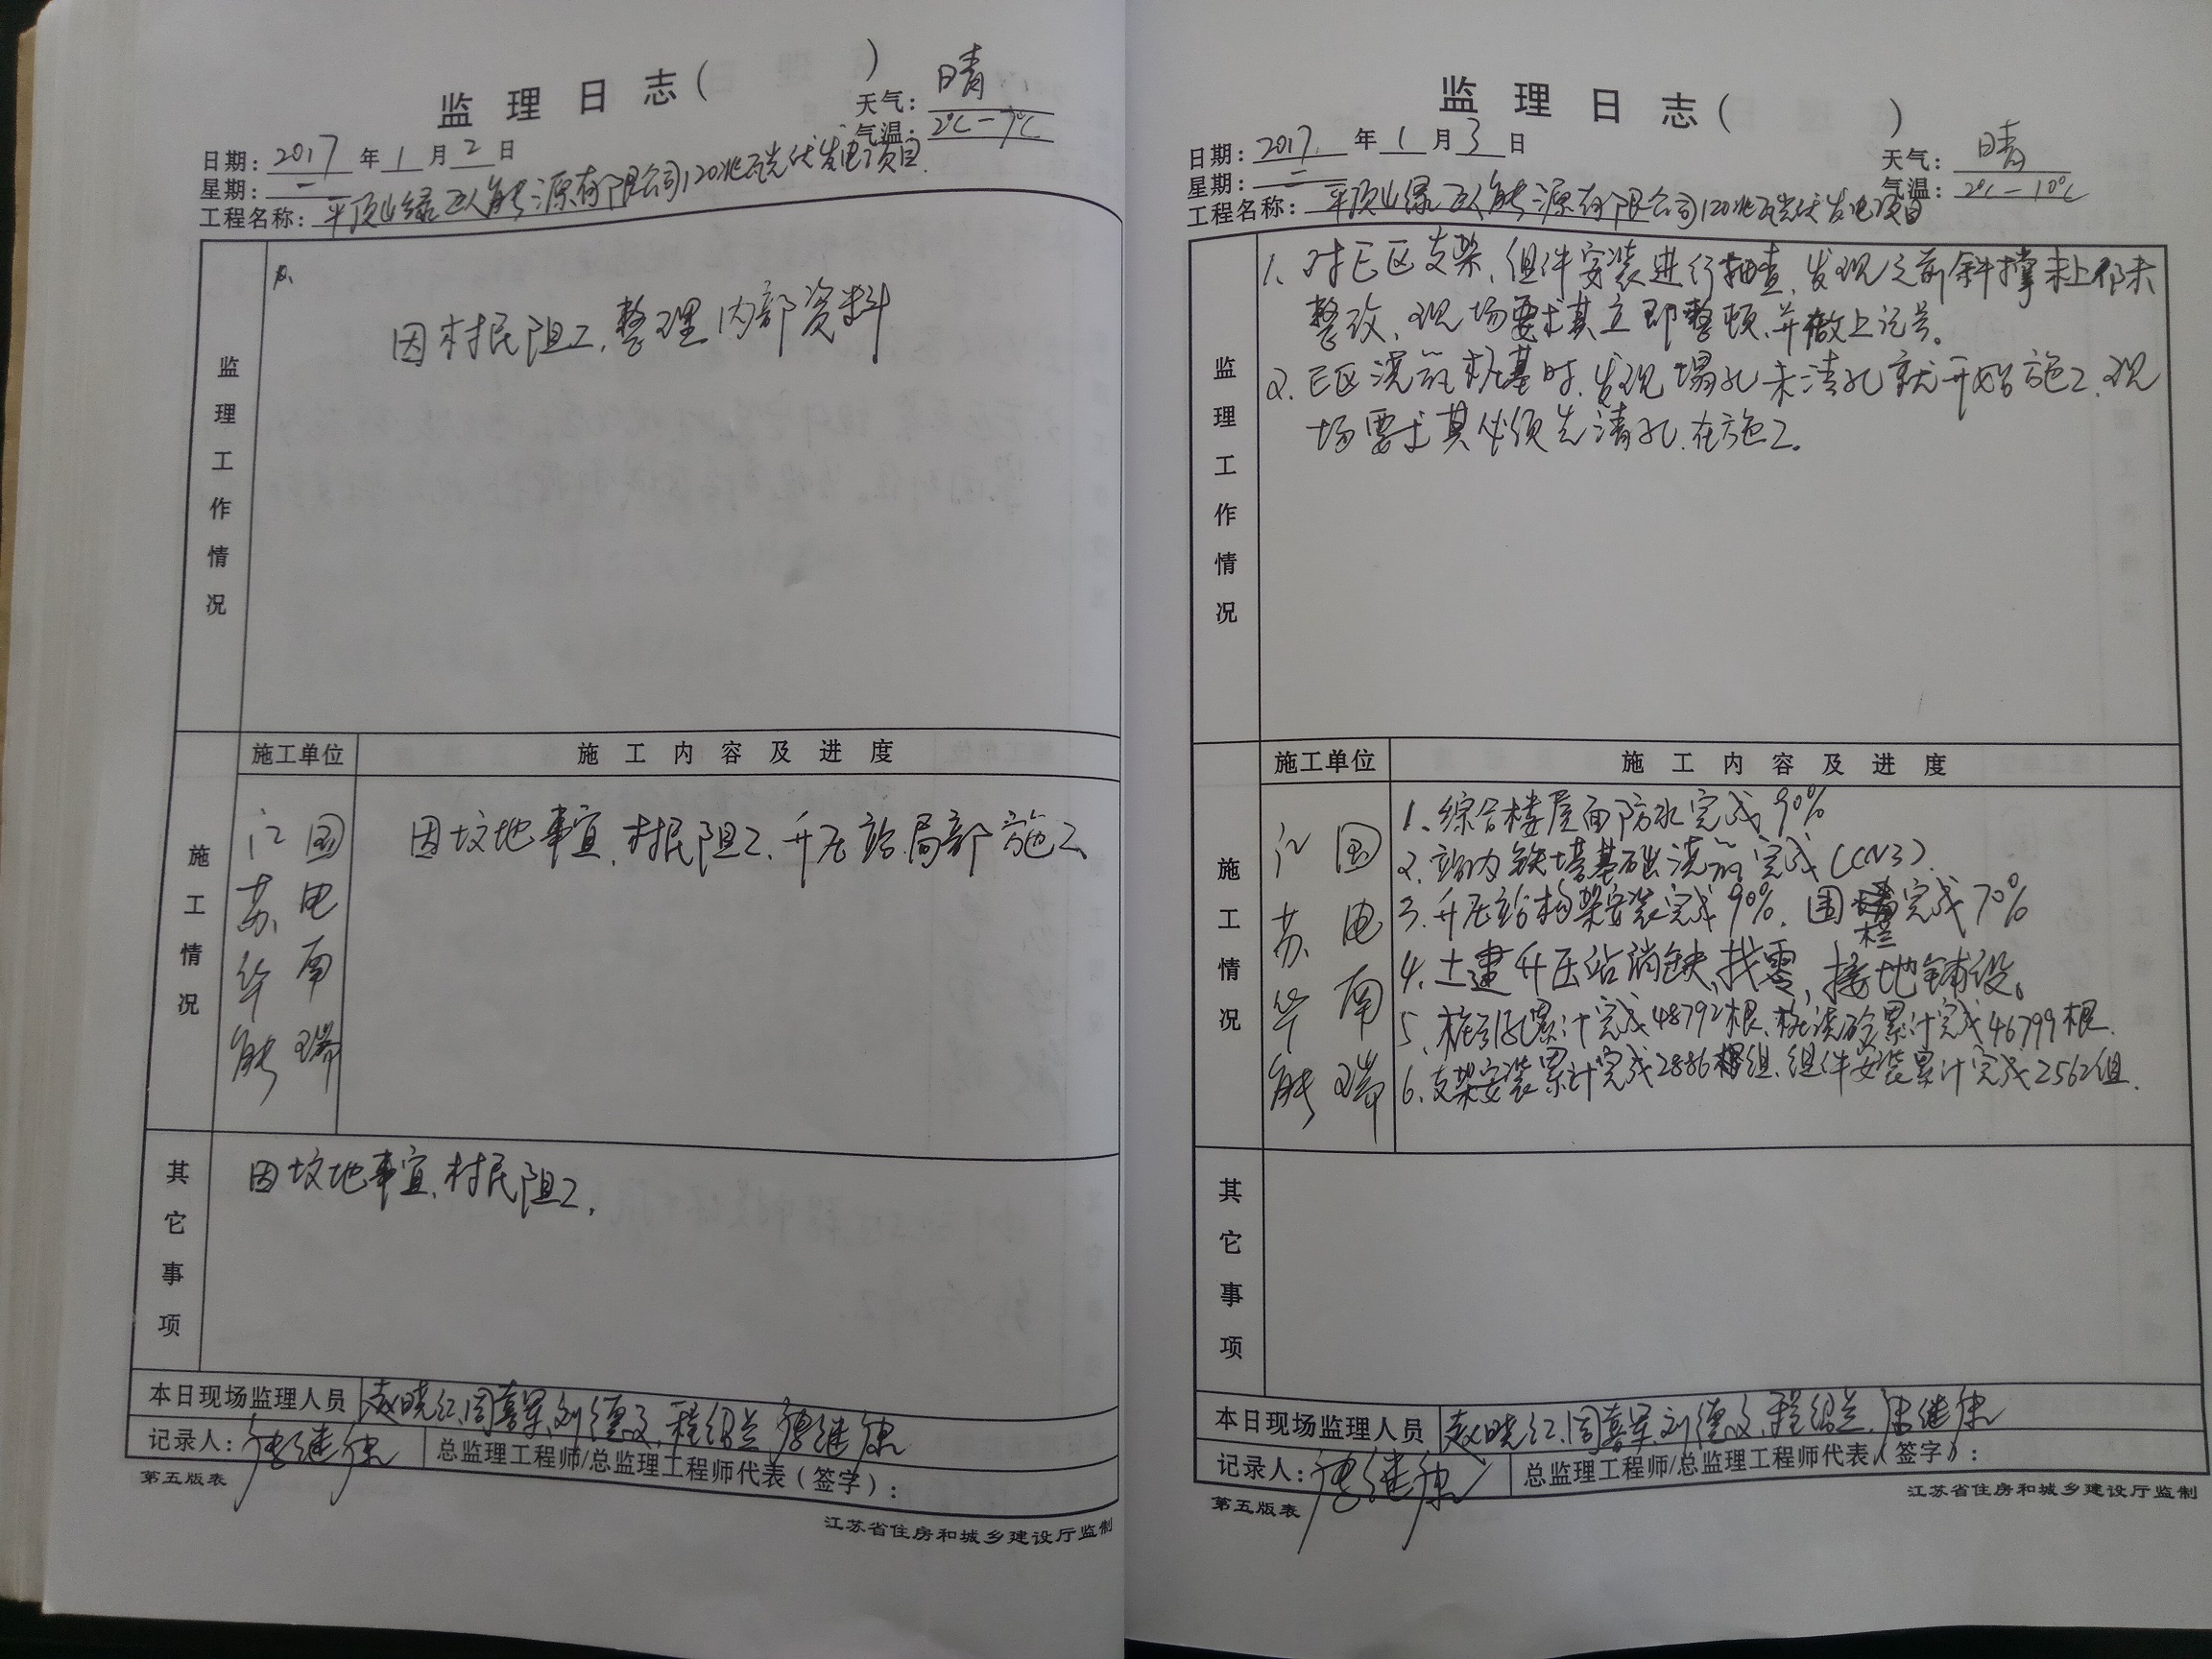 监理日志（ ）
天气：晴
日期：2017年1月2日
气温：2℃-7℃
星期：一
工程名称：平顶山绿巨人能源有限公司120兆瓦光伏发电项目
监理工作情况
因村民阻工，整理内部资料
施工单位 施工内容及进度
施工情况
江苏华能
国电南瑞
因坟地事宜，村民阻工，升压站局部施工、
其它事项
因坟地事宜，村民阻工，
本日现场监理人员 赵晓红、周喜军、刘德义、程绍兰、唐继康
记录人：唐继康 总监理工程师/总监理工程师代表（签字）：
第五版表
江苏省住房和城乡建设厅监制
监理日志（ ）
日期：2017年1月3日
天气：晴
星期：二
气温：2℃-10℃
工程名称：平顶山绿巨人能源有限公司120兆瓦光伏发电项目
监理工作情况
1、对E区支架、组件安装进行抽查，发现之前斜撑未上仍未
整改，现场要求其立即整顿，并做上记号。
2、E区浇筑桩基时，发现塌孔未清孔就开始施工，现
场要求其必须先清孔，在施工。
施工单位 施工内容及进度
施工情况
江苏华能
国电南瑞
1、综合楼屋面防水完成90%
2、站内铁塔基础浇筑完成（CN3）.
3、升压站构架安装完成90%，围栏完成70%
4、土建升压站消缺、找零，接地铺设。
5、桩引孔累计完成48792根，桩浇砼累计完成46799根.
6、支架安装累计完成2886组，组件安装累计完成2562组.
其它事项
本日现场监理人员 赵晓红、周喜军、刘德义、程绍兰、唐继康
记录人：唐继康 总监理工程师/总监理工程师代表（签字）：
第五版表
江苏省住房和城乡建设厅监制